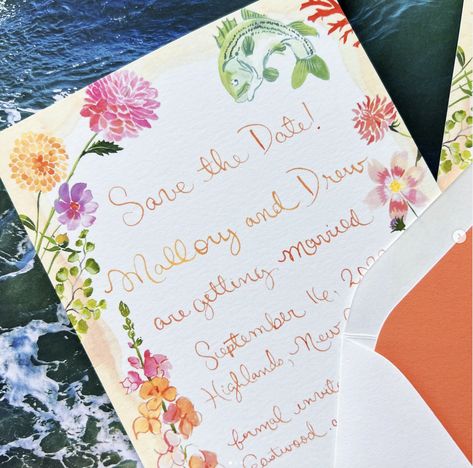 Save the Date!
Mallory and Drew
are getting married
September 16, 202
Highlands, New
formal invit
Eastwood